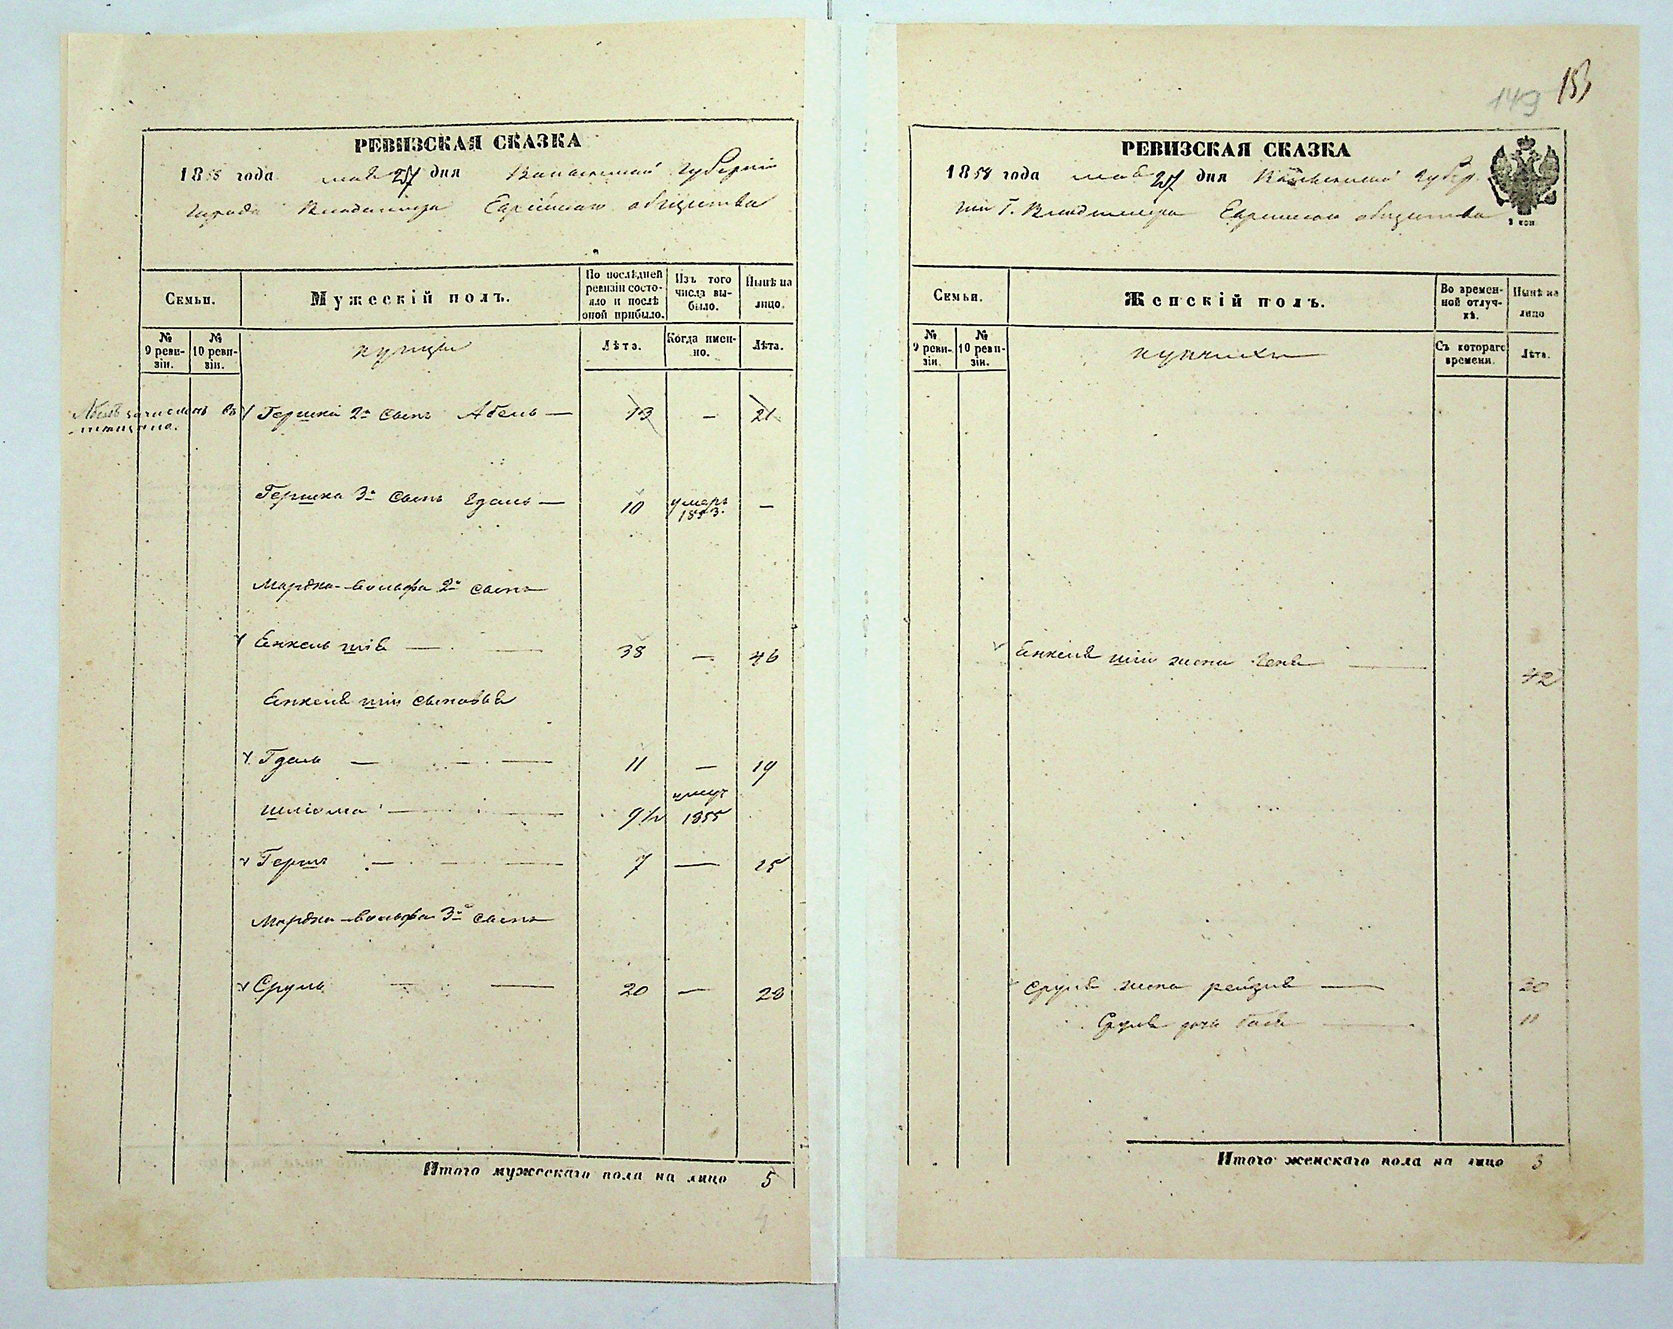 РЕВИЗСКАЯ СКАЗКА
1858 года мая 27 дня Волынской Губернии
города Владимира Еврейского общества
Семьи.
Мужескій полъ.
По послѣдней ревизіи состояло и послѣ оной прибыло.
Изъ того числа выбыло.
Нынѣ на лицо.
№ 9 ревизіи.
№ 10 ревизіи.
купцы
Лѣта.
Когда именно.
Лѣта.
Абель зачисленъ въ
Гершка 2й сынъ Абель — 13 — 21
Гершка 3й сынъ — 10 умеръ 1853. —
Мордка-Вольфа 2й сынъ
Енкель — 38 — 46
Енкеля сыновья
Гдаль — 11 — 19
Шліома — 9½ 1855
Герш — 7 — 15
Мордка-Вольфа 3й сынъ
Сруль — 20 — 28
Итого мужескаго пола на лицо 5
4
149 153
РЕВИЗСКАЯ СКАЗКА
1858 года мая 27 дня Волынской Губер
ніи Г. Владимира Еврейского общества
Семьи.
Женскій полъ.
Во временной отлучкѣ.
Нынѣ на лицо
№ 9 ревизіи.
№ 10 ревизіи.
купчихи
Съ котораго времени.
Лѣта.
Енкеля жена — 42
Сруля жена Рейзля — 30
Сруля дочь Бася — 11
Итого женскаго пола на лицо 3